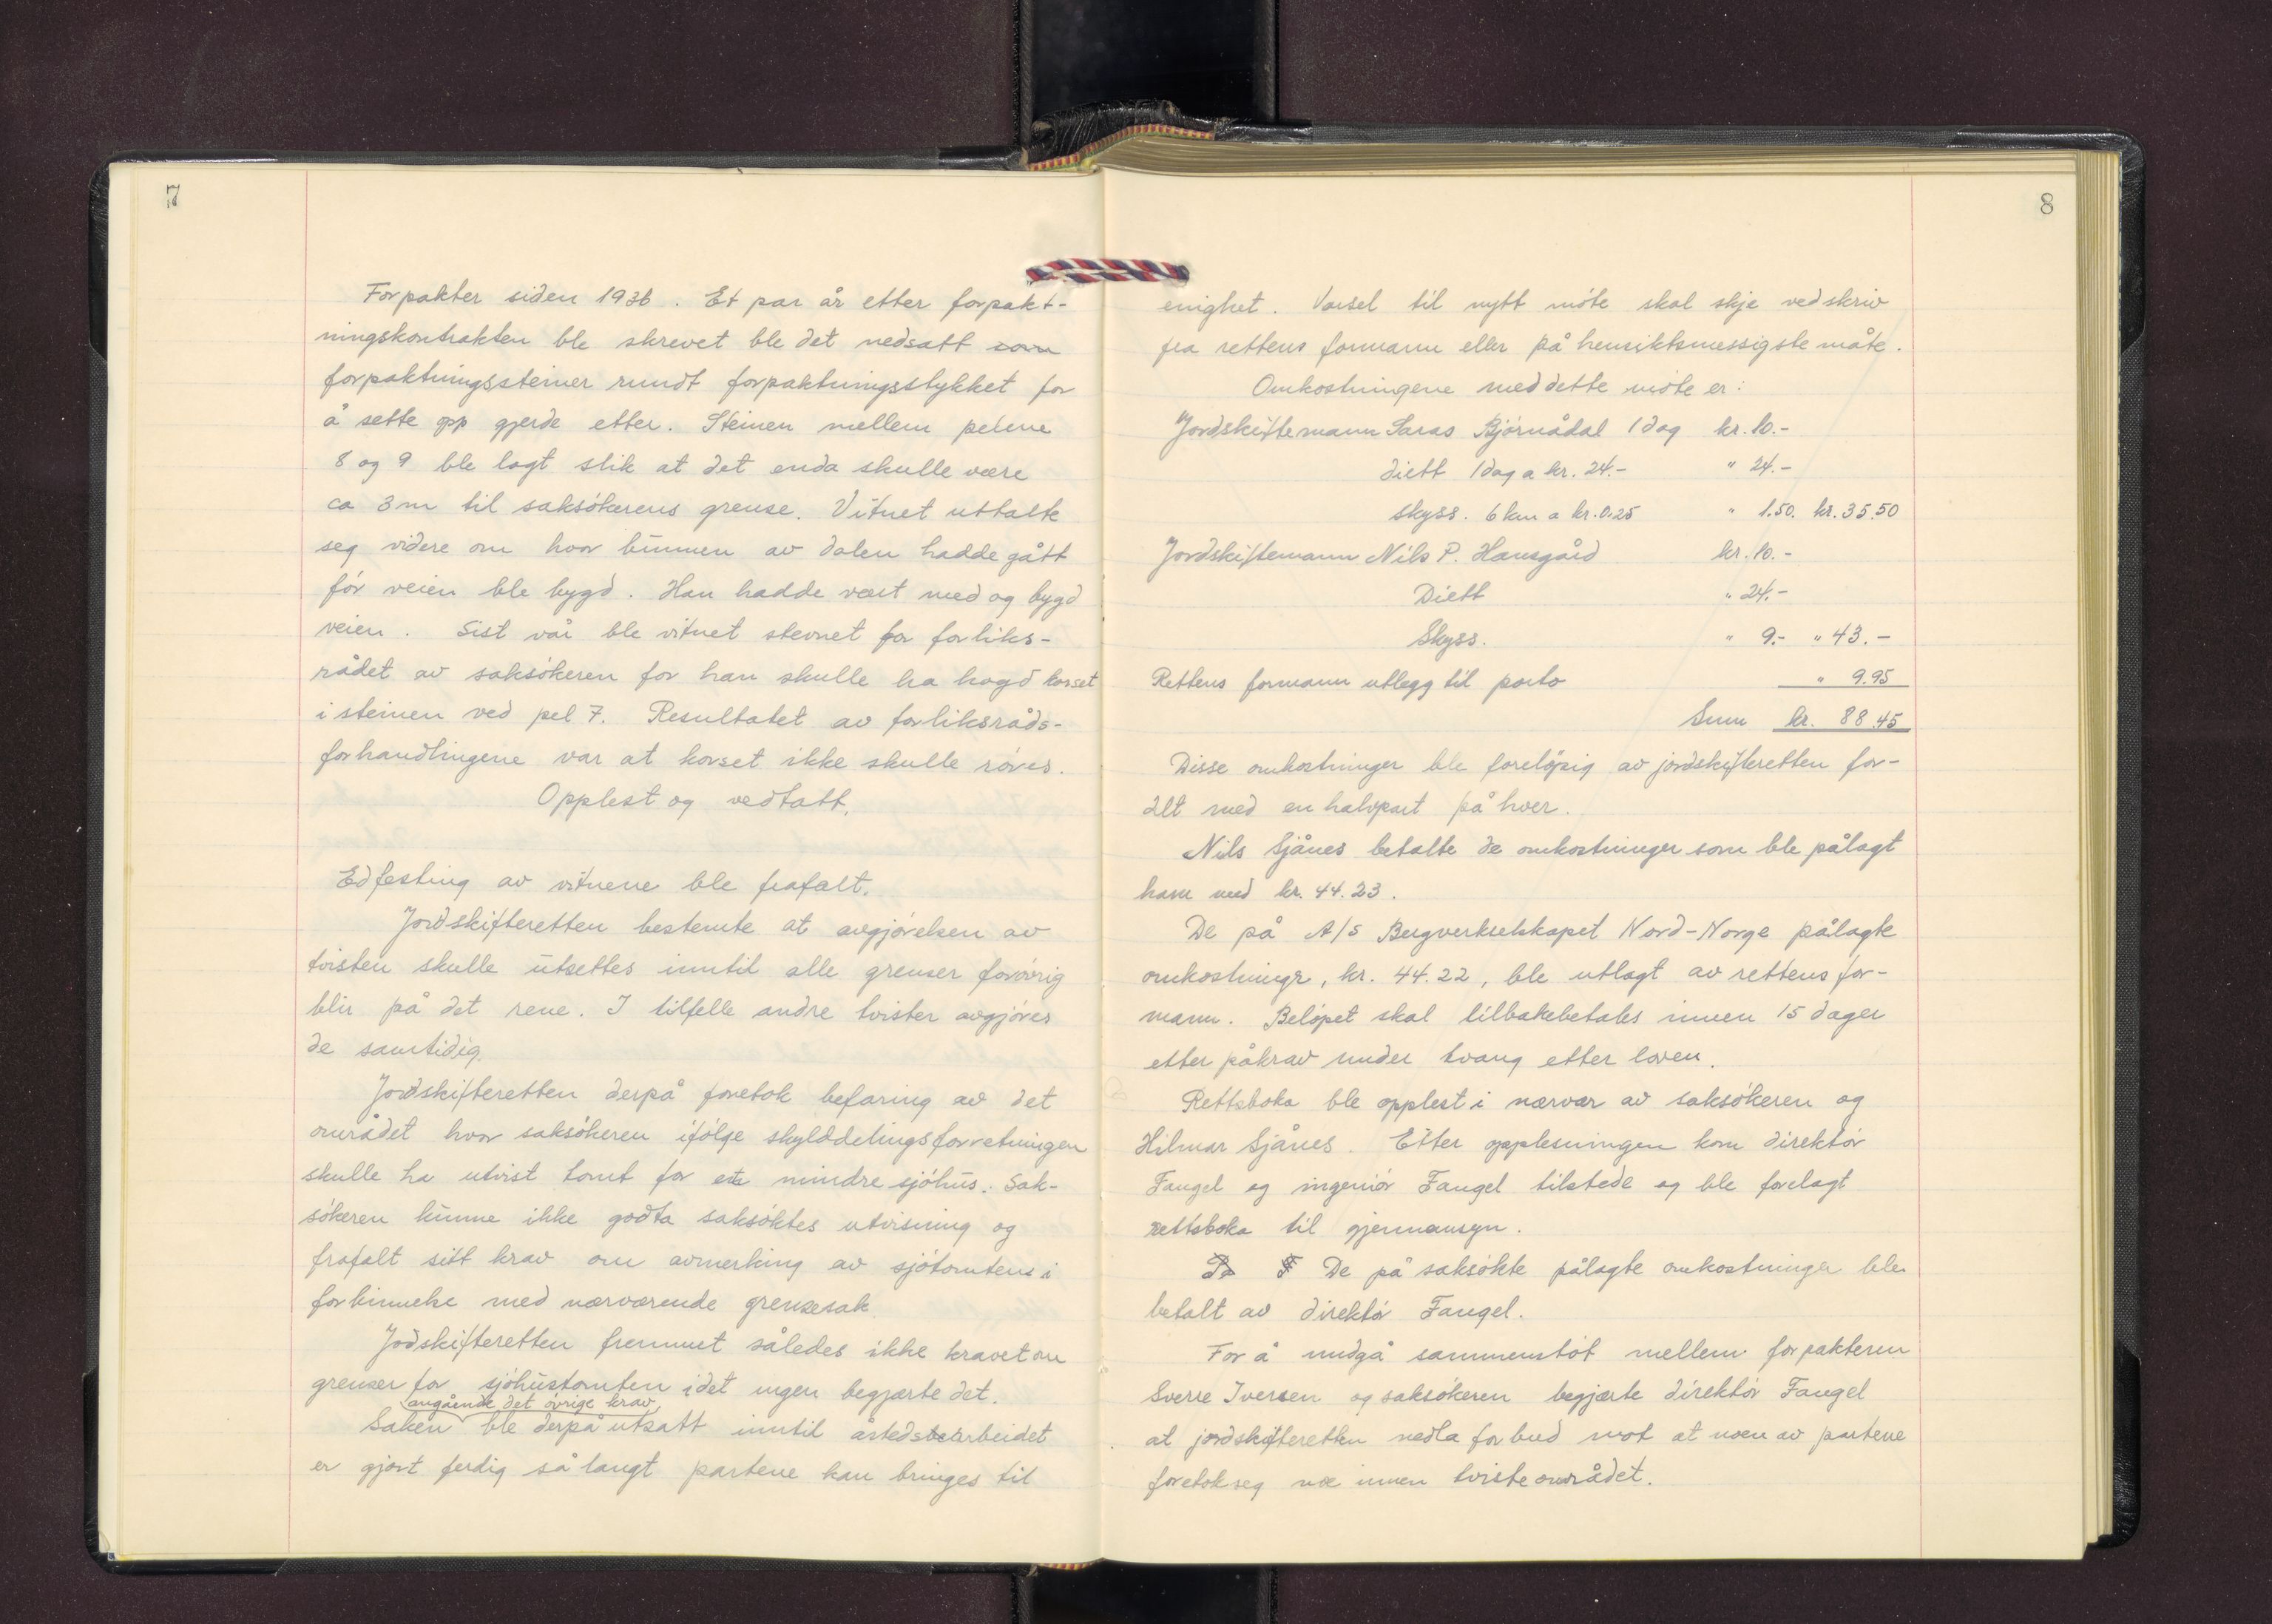 7
Forpakter siden 1936. Et par år etter forpakt-
ningskontrakten ble skrevet ble det nedsatt som
forpaktningssteiner rundt forpaktningsstykket for
å sette opp gjerde etter. Steinen mellem pelene
8 og 9 ble lagt slik at det enda skulle være
ca 3 m til saksökerens grense. Vitnet uttalte
seg videre om hvor bunnen av dalen hadde gått
för veien ble bygd. Han hadde vært med og bygd
veien. Sist vår ble vitnet stevnet for forliks-
rådet av saksökeren for han skulle ha hogd korset
i steinen ved pel 7. Resultatet av forliksråds-
forhandlingene var at korset ikke skulle röres.
Opplest og vedtatt.
Edfesting av vitnene ble frafalt.
Jordskifteretten bestemte at avgjörelsen av
tvisten skulle utsettes inntil alle grenser forövrig
blir på det rene. I tilfelle andre tvister avgjöres
de samtidig.
Jordskifteretten derpå foretok befaring av det
området hvor saksökeren ifölge skylddelingsforretningen
skulle ha utvist tomt for et mindre sjöhus. Sak-
sökeren kunne ikke godta saksöktes utvisning og
frafalt sitt krav om avmerking av sjötomten i
forbinnelse med nærværende grensesak.
Jodskifteretten fremmet således ikke kravet om
grenser for sjöhustomten idet ingen begjærte det.
angående det övrige krav
Saken ble derpå utsatt inntil åstedsarbeidet
er gjort ferdig så langt partene kan bringes til
8
enighet. Varsel til nytt möte skal skje ved skriv
fra rettens formann eller på hensiktsmessigste måte.
Omkostningene med dette möte er:
Jordskiftemann Saras Björnådal 1 dag kr. 10.-
diett 1 dag a kr. 24.- " 24.-
skyss. 6 km a kr. 0.25 " 1.50. kr. 35.50
Jordskiftemann Nils P. Hansgård kr. 10.-
Diett " 24.-
Skyss. " 9.- " 43.-
Rettens formann utlegg til porto " 9.95
Sum kr. 88.45
Disse omkostninger ble forelöpig av jordskifteretten for-
delt med en halvpart på hver.
Nils Sjånes betalte de omkostninger som ble pålagt
ham med kr. 44.23.
De på A/S Bergverkselskapet Nord-Norge pålagte
omkostninger, kr. 44.22, ble utlagt av rettens for-
mann. Belöpet skal tilbakebetales innen 15 dager
etter påkrav under tvang etter loven.
Rettsboka ble opplest i nærvær av saksökeren og
Hilmar Sjånes. Etter opplesningen kom direktör
Fangel og ingeniör Fangel tilstede og ble forelagt
rettsboka til gjennemsyn.
De på saksökte pålagte omkostninger ble
betalt av direktör Fangel.
For å undgå sammenstöt mellem forpakteren
Sverre Iversen og saksökeren begjærte direktör Fangel
at jordskifteretten nedla forbud mot at noen av partene
foretok seg noe innen tvisteområdet.